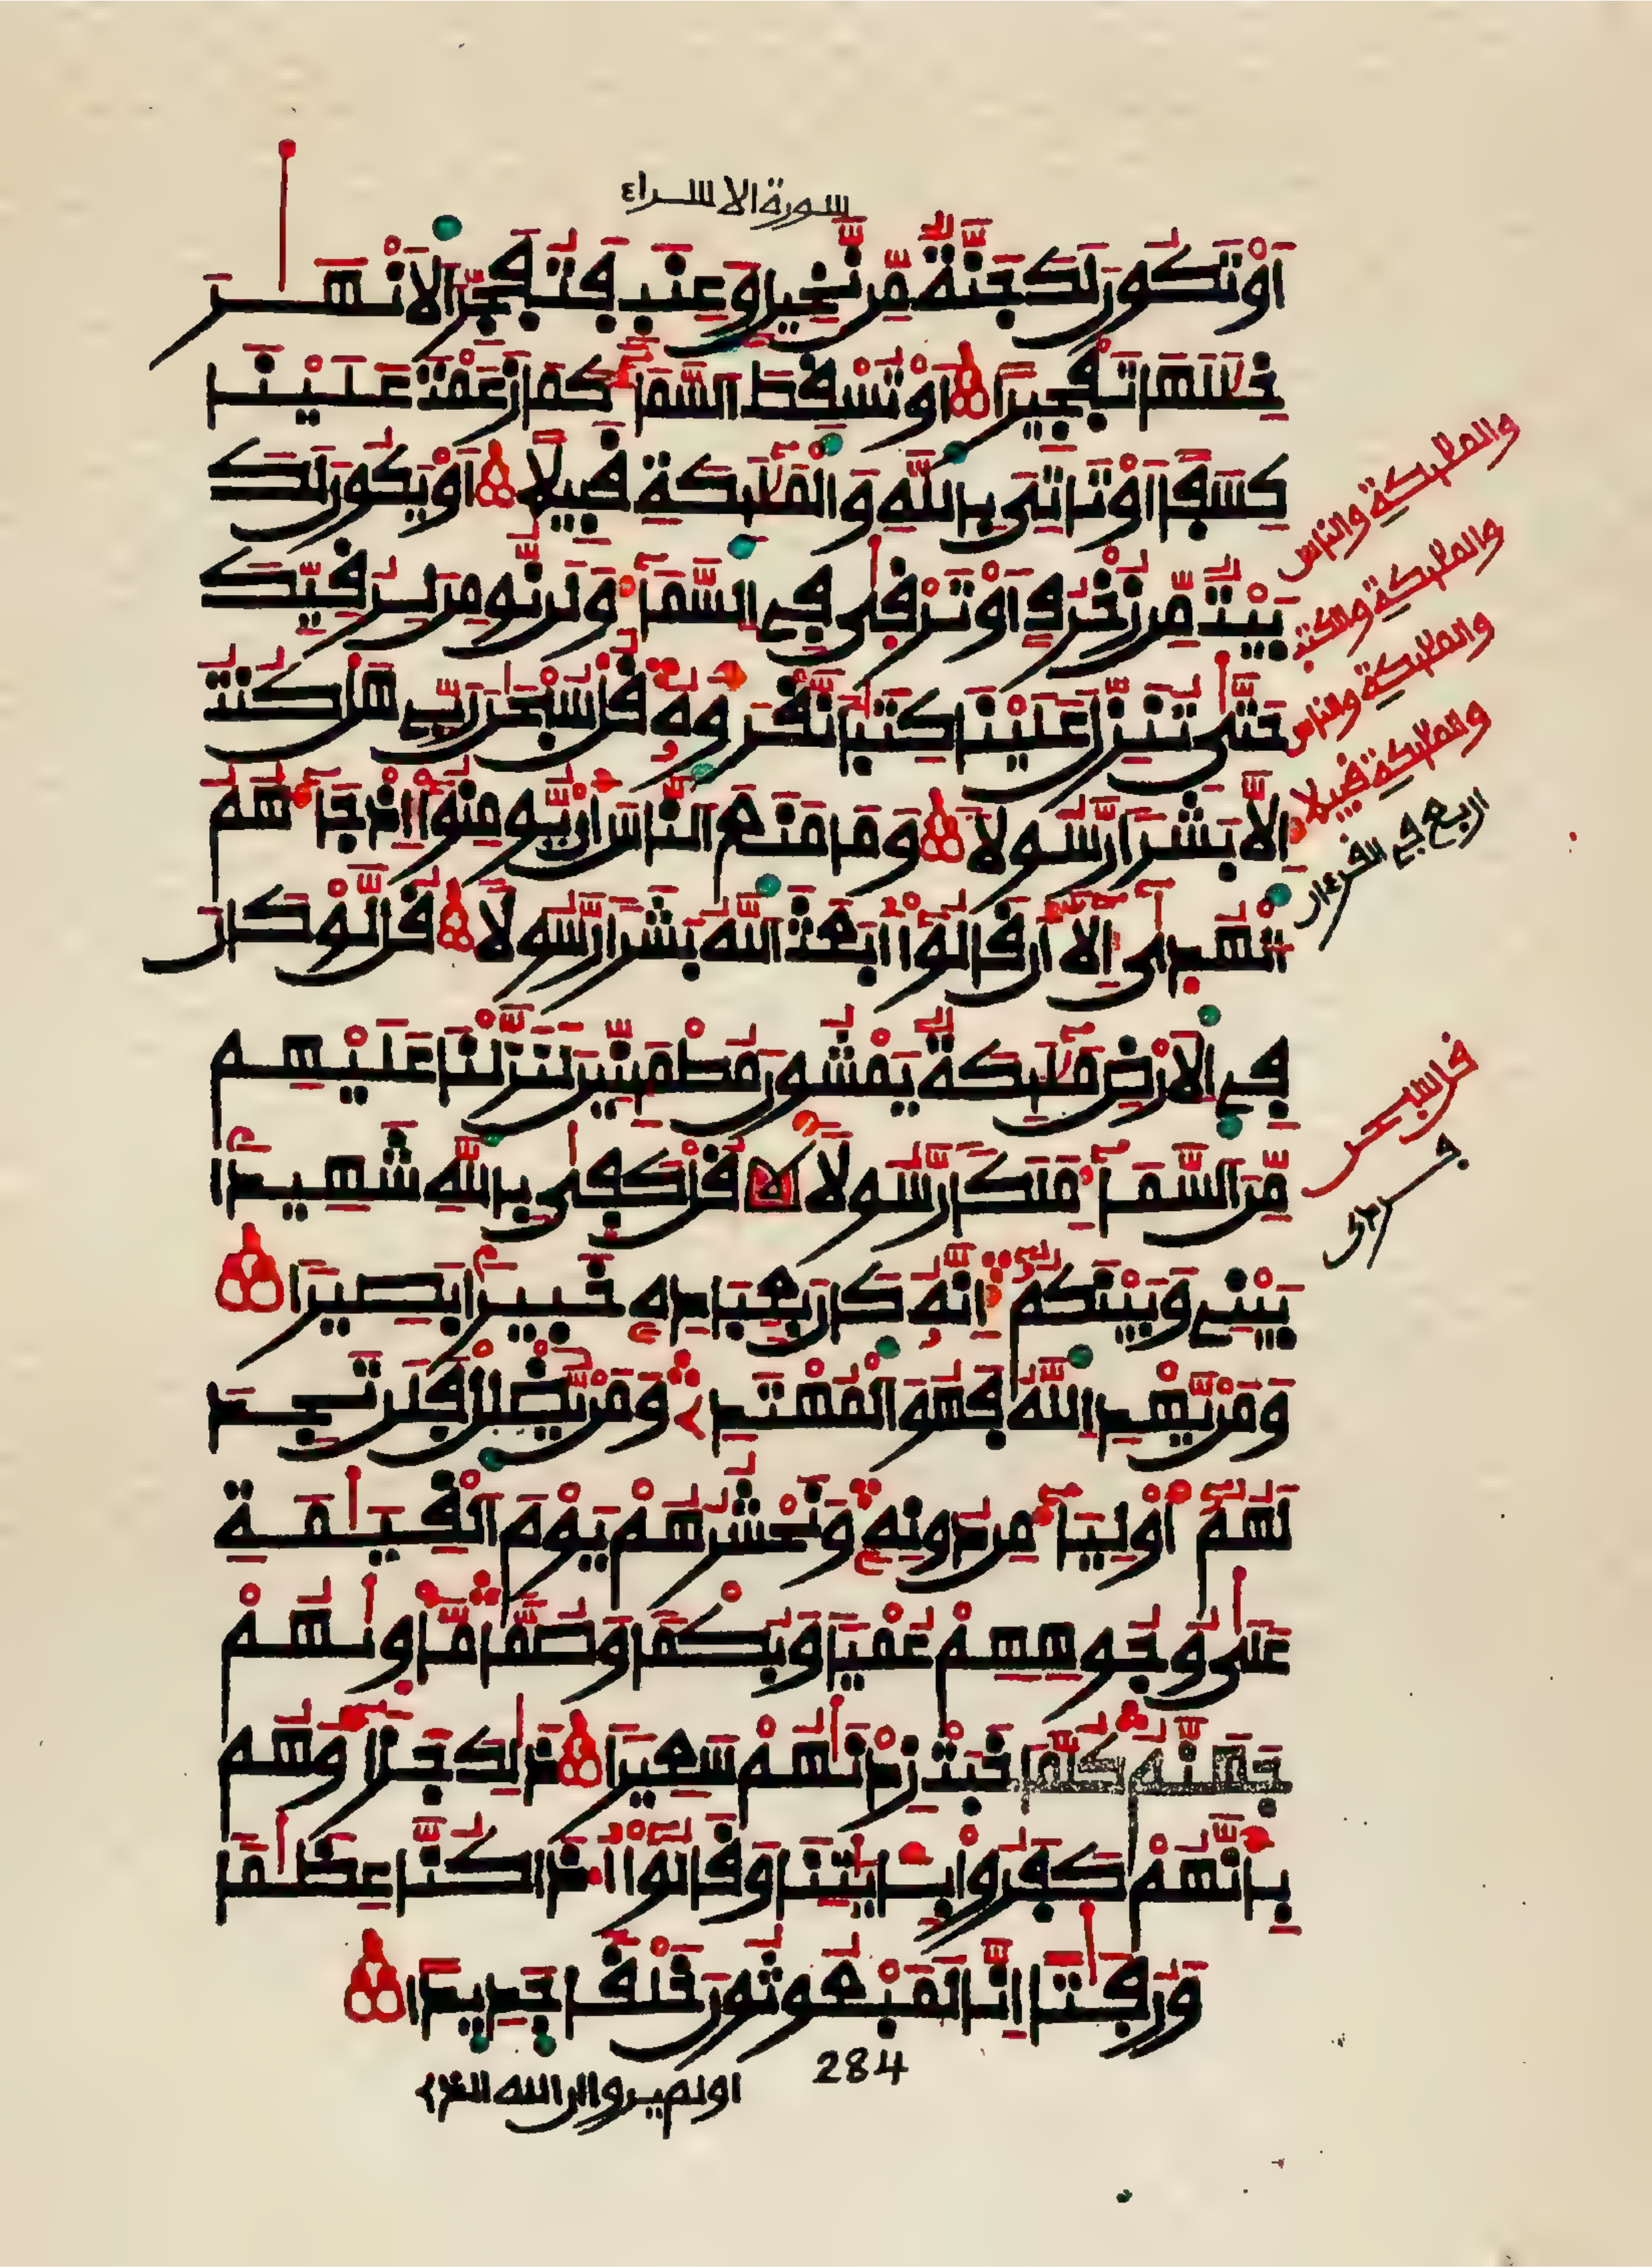 سورة الاسراء
أَوْ تَكُونَ لَكَ جَنَّةٌ مِّن نَّخِيلٍ وَعِنَبٍ فَتُفَجِّرَ الَانْهَٰرَ
خِلَٰلَهَا تَفْجِيرًا أَوْ تُسْقِطَ السَّمَآءَ كَمَا زَعَمْتَ عَلَيْنَا
كِسَفًا أَوْ تَاتِيَ بِاللَّهِ وَالْمَلَٰٓئِكَةِ قَبِيلًا أَوْ يَكُونَ لَكَ
بَيْتٌ مِّن زُخْرُفٍ أَوْ تَرْقَىٰ فِي السَّمَآءِ وَلَن نُّومِنَ لِرُقِيِّكَ
حَتَّىٰ تُنَزِّلَ عَلَيْنَا كِتَٰبًا نَّقْرَؤُهُ قُلْ سُبْحَانَ رَبِّي هَلْ كُنتُ
إِلَّا بَشَرًا رَّسُولًا وَمَا مَنَعَ النَّاسَ أَنْ يُّومِنُوا إِذْ جَآءَهُمُ
الْهُدَىٰٓ إِلَّآ أَن قَالُوٓا أَبَعَثَ اللَّهُ بَشَرًا رَّسُولًا قُل لَّوْ كَانَ
فِي الَارْضِ مَلَٰٓئِكَةٌ يَمْشُونَ مُطْمَئِنِّينَ لَنَزَّلْنَا عَلَيْهِم
مِّنَ السَّمَآءِ مَلَكًا رَّسُولًا قُلْ كَفَىٰ بِاللَّهِ شَهِيدًا
بَيْنِي وَبَيْنَكُمُ إِنَّهُ كَانَ بِعِبَادِهِ خَبِيرًا بَصِيرًا
وَمَنْ يَّهْدِ اللَّهُ فَهُوَ الْمُهْتَدِ وَمَنْ يُّضْلِلْ فَلَن تَجِدَ
لَهُمُ أَوْلِيَآءَ مِن دُونِهِ وَنَحْشُرُهُمْ يَوْمَ الْقِيَٰمَةِ
عَلَىٰ وُجُوهِهِمْ عُمْيًا وَبُكْمًا وَصُمًّا مَّأْوَىٰهُمْ
جَهَنَّمُ كُلَّمَا خَبَتْ زِدْنَٰهُمْ سَعِيرًا ذَٰلِكَ جَزَآؤُهُم
بِأَنَّهُمْ كَفَرُوا بِـَٔايَٰتِنَا وَقَالُوٓا أَ.ذَا كُنَّا عِظَٰمًا
وَرُفَٰتًا إِنَّا لَمَبْعُوثُونَ خَلْقًا جَدِيدًا
284
اولم يروا ان الله الذي
والملئكة والناس
والملئكة والكتب
والملئكة والناس
والملئكة قبيلا
اربع في القرءان
قل سبحن